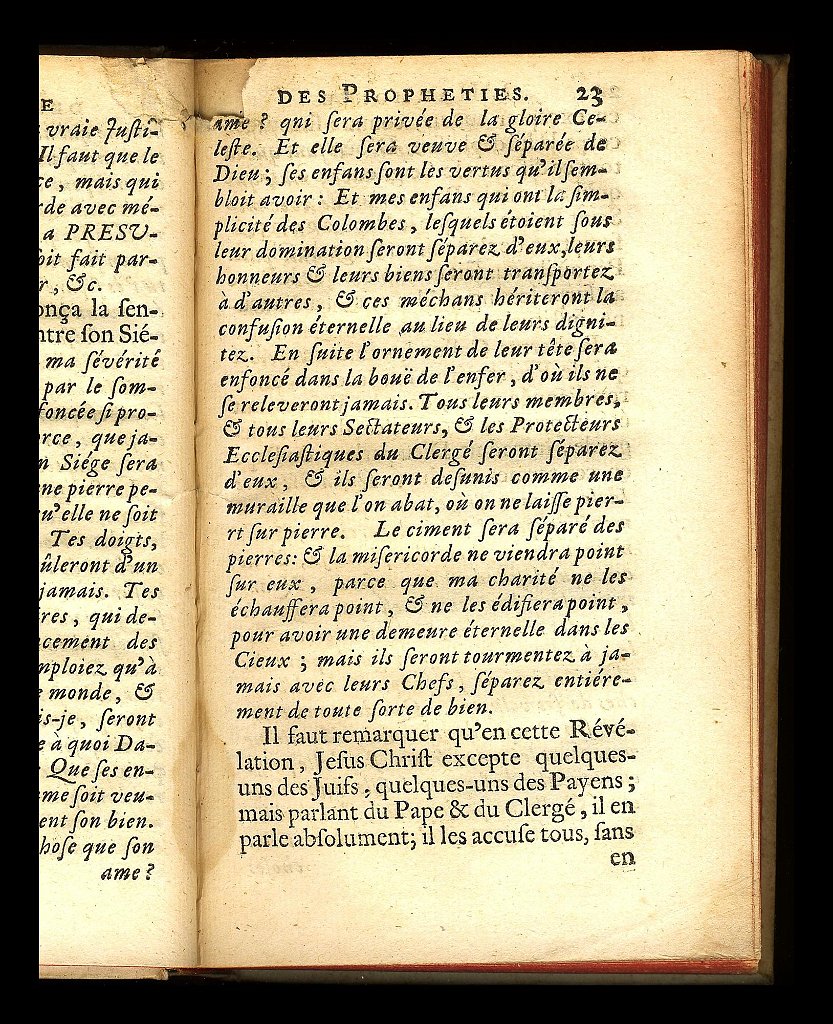 E
vraie Justi-
Il faut que le
ce, mais qui
rde avec mé-
a PRESU-
oit fait par-
r, &c.
onça la sen-
ntre son Sié-
ma sévérité
par le som-
foncée si pro-
orce, que ja-
n Siége sera
ne pierre pe-
u'elle ne soit
Tes doigts,
ûleront d'un
jamais. Tes
ires, qui de-
cement des
mploiez qu'à
e monde, &
is-je, seront
e à quoi Da-
Que ses en-
me soit veu-
ent son bien.
hose que son
ame?
DES PROPHETIES. 23
ame ? qni ſera privée de la gloire Ce-
leſte. Et elle ſera veuve & ſéparée de
Dieu ; ſes enfans ſont les vertus qu'il ſem-
bloit avoir : Et mes enfans qui ont la ſim-
plicité des Colombes, leſquels étoient ſous
leur domination ſeront ſéparez d'eux, leurs
honneurs & leurs biens ſeront tranſportez
à d'autres, & ces méchans hériteront la
confuſion éternelle au lieu de leurs digni-
tez. En ſuite l'ornement de leur tête ſera
enfoncé dans la bouë de l'enfer, d'où ils ne
ſe releveront jamais. Tous leurs membres,
& tous leurs Sectateurs, & les Protecteurs
Eccleſiaſtiques du Clergé ſeront ſéparez
d'eux, & ils ſeront deſunis comme une
muraille que l'on abat, où on ne laiſſe pier-
rt ſur pierre. Le ciment ſera ſéparé des
pierres: & la miſericorde ne viendra point
ſur eux, parce que ma charité ne les
échauffera point, & ne les édifiera point,
pour avoir une demeure éternelle dans les
Cieux ; mais ils ſeront tourmentez à ja-
mais avec leurs Chefs, ſéparez entiére-
ment de toute ſorte de bien.
Il faut remarquer qu'en cette Révé-
lation, Jeſus Chriſt excepte quelques-
uns des Juifs, quelques-uns des Payens ;
mais parlant du Pape & du Clergé, il en
parle abſolument; il les accuſe tous, ſans
en